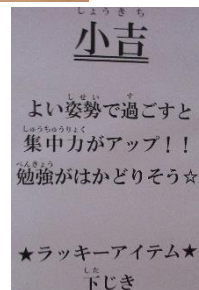 しょうきち
小吉
しせい す
よい姿勢で過ごすと
しゅうちゅうりょく
集中力がアップ！！
べんきょう
勉強がはかどりそう☆
★ラッキーアイテム★
した
下じき